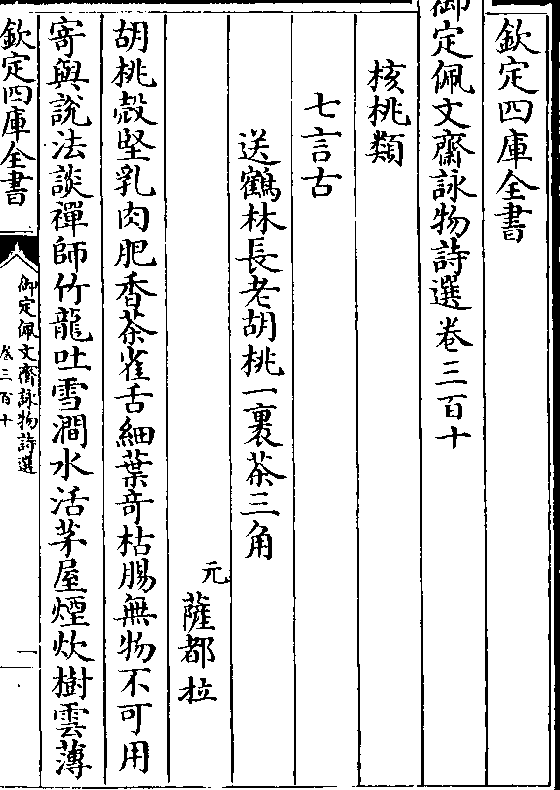 欽定四庫全書
御定佩文齋詠物詩選卷三百十
核桃類
七言古
送鶴林長老胡桃一裹茶三角
元薩都拉
胡桃殼堅乳肉肥香茶雀舌細葉奇枯腸無物不可用
寄與說法談禪師竹龍吐雪澗水活茅屋煙炊樹雲薄
欽定四庫全書
御定佩文齋詠物詩選
卷三百十
一